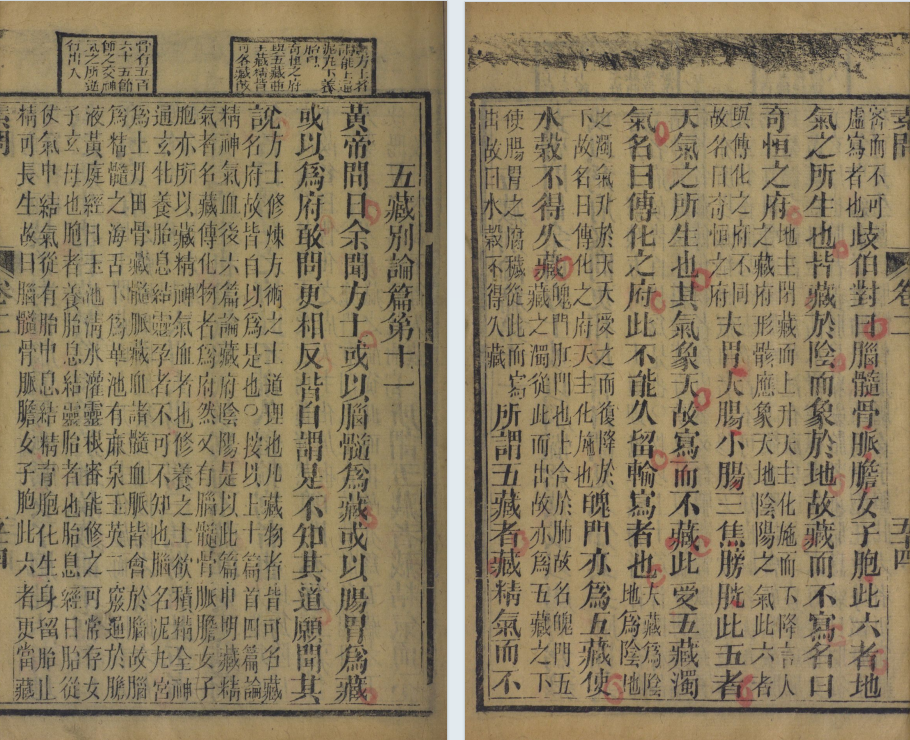 方士者
能上通
泥丸下養
胎息
奇恒之府
與五藏亞
可名藏故
骨有五百
六十五節
節之交神
氣之所遊
行出入
五藏別論篇第十一
黃帝問曰余聞方士或以腦髓爲藏或以腸胃爲藏
或以爲府敢問更相反皆自謂是不知其道願聞其
說
方士修煉方術之士道理也凡藏物者皆可名藏
名府故皆自以爲是也○按以上十篇首四篇論
精神氣血後六篇論藏府陰陽是以此篇申明藏精
氣者名藏傳化物者爲府然又有腦髓骨脈膽女子
胞亦所以藏精神氣血者也修養之士欲積精全神
通玄牝養胎息結靈孕者不可不知也腦名泥丸宮
爲上丹田也骨藏髓脈藏血諸髓血脈皆會於腦故腦
爲精髓之海舌下爲華池有廉泉玉英二竅通於膽
液黃庭經曰玉池清水灌靈根審能修之可常存女
子玄母也胞者養胎息結靈胎者也胎息經曰胎從
伏氣中結氣從胎中息結精育胞化生身留胎止
精可長生故曰腦髓骨脈膽女子胞此六者更當藏
素問
卷二
五四
素問
卷二
五四
密而不可
虛寫者也
岐伯對曰腦髓骨脈膽女子胞此六者地
氣之所生也皆藏於陰而象於地故藏而不寫名曰
奇恒之府
地主閉藏而上升天主化施而下降言人
之藏府形骸應象天地陰陽之氣此六者
與傳化之府不同
故名曰奇恒之府
夫胃大腸小腸三焦膀胱此五者
天氣之所生也其氣象天故寫而不藏此受五藏濁
氣名曰傳化之府此不能久留輸寫者也
天藏爲陰
地爲陰地
之濁氣升於天天受之而復降於
下故名曰傳化之府天主化施也
魄門亦爲五藏使
水穀不得久藏
魄門肛門也上合於肺故名魄門五
藏之濁從此而出故亦爲五藏之下
使腸胃之腐穢從此而寫
出故曰水穀不得久藏
所謂五藏者藏精氣而不